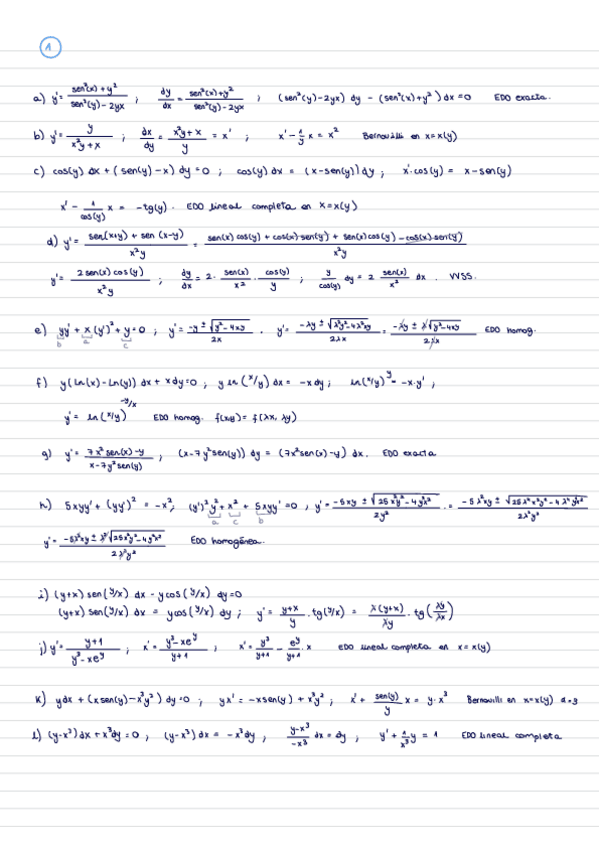 1
a) y' = sen²(x)+y² / sen²(y)-2yx ; dy/dx = sen²(x)+y² / sen²(y)-2yx ; (sen²(y)-2yx) dy - (sen²(x)+y²) dx = 0 EDO exacta.
b) y' = y / x²y+x ; dx/dy = x²y+x / y = x' ; x' - 1/y x = x² Bernouilli en x=x(y)
c) cos(y) dx + (sen(y)-x) dy = 0 ; cos(y) dx = (x-sen(y)) dy ; x'·cos(y) = x-sen(y)
x' - 1/cos(y) x = -tg(y). EDO lineal completa en x=x(y)
d) y' = sen(x+y) + sen(x-y) / x²y = sen(x)cos(y) + cos(x)·sen(y) + sen(x)cos(y) - cos(x)·sen(y) / x²y
y' = 2sen(x)cos(y) / x²y ; dy/dx = 2· sen(x)/x² · cos(y)/y ; y/cos(y) dy = 2 sen(x)/x² dx . VVSS.
e) yy' + x(y')² + y = 0 ; y' = -y ± √(y²-4xy) / 2x . y' = -λy ± √(λ²y²-4λ²xy) / 2λx = -λy ± λ√(y²-4xy) / 2λx EDO homog.
b a c
f) y(ln(x)-ln(y)) dx + xdy = 0 ; y ln(x/y) dx = -xdy ; ln(x/y)^y = -x·y' ;
y' = ln(x/y)^(-y/x) EDO homog. f(x,y) = f(λx, λy)
g) y' = 7x²sen(x)-y / x-7y²sen(y) ; (x-7y²sen(y)) dy = (7x²sen(x)-y) dx. EDO exacta
h) 5xyy' + (yy')² = -x² ; (y')²y² + x² + 5xyy' = 0 , y' = -5xy ± √(25x²y²-4y²x²) / 2y² = -5λ²xy ± √(25λ⁴x²y²-4λ⁴y²x²) / 2λ²y²
a c b
y' = -5λ²xy ± λ²√(25x²y²-4y²x²) / 2λ²y² EDO homogénea.
i) (y+x) sen(y/x) dx - ycos(y/x) dy = 0
(y+x) sen(y/x) dx = ycos(y/x) dy ; y' = y+x / y · tg(y/x) = λ(y+x) / λy · tg(λy/λx)
j) y' = y+1 / y³-xe^y ; x' = y³-xe^y / y+1 ; x' = y³/y+1 - e^y/y+1 · x EDO lineal completa en x=x(y)
k) ydx + (xsen(y)-x³y²) dy = 0 ; yx' = -xsen(y) + x³y² ; x' + sen(y)/y x = y·x³ Bernouilli en x=x(y) α=3
l) (y-x³) dx + x³dy = 0 ; (y-x³) dx = -x³dy ; y-x³ / -x³ dx = dy ; y' + 1/x³ y = 1 EDO lineal completa